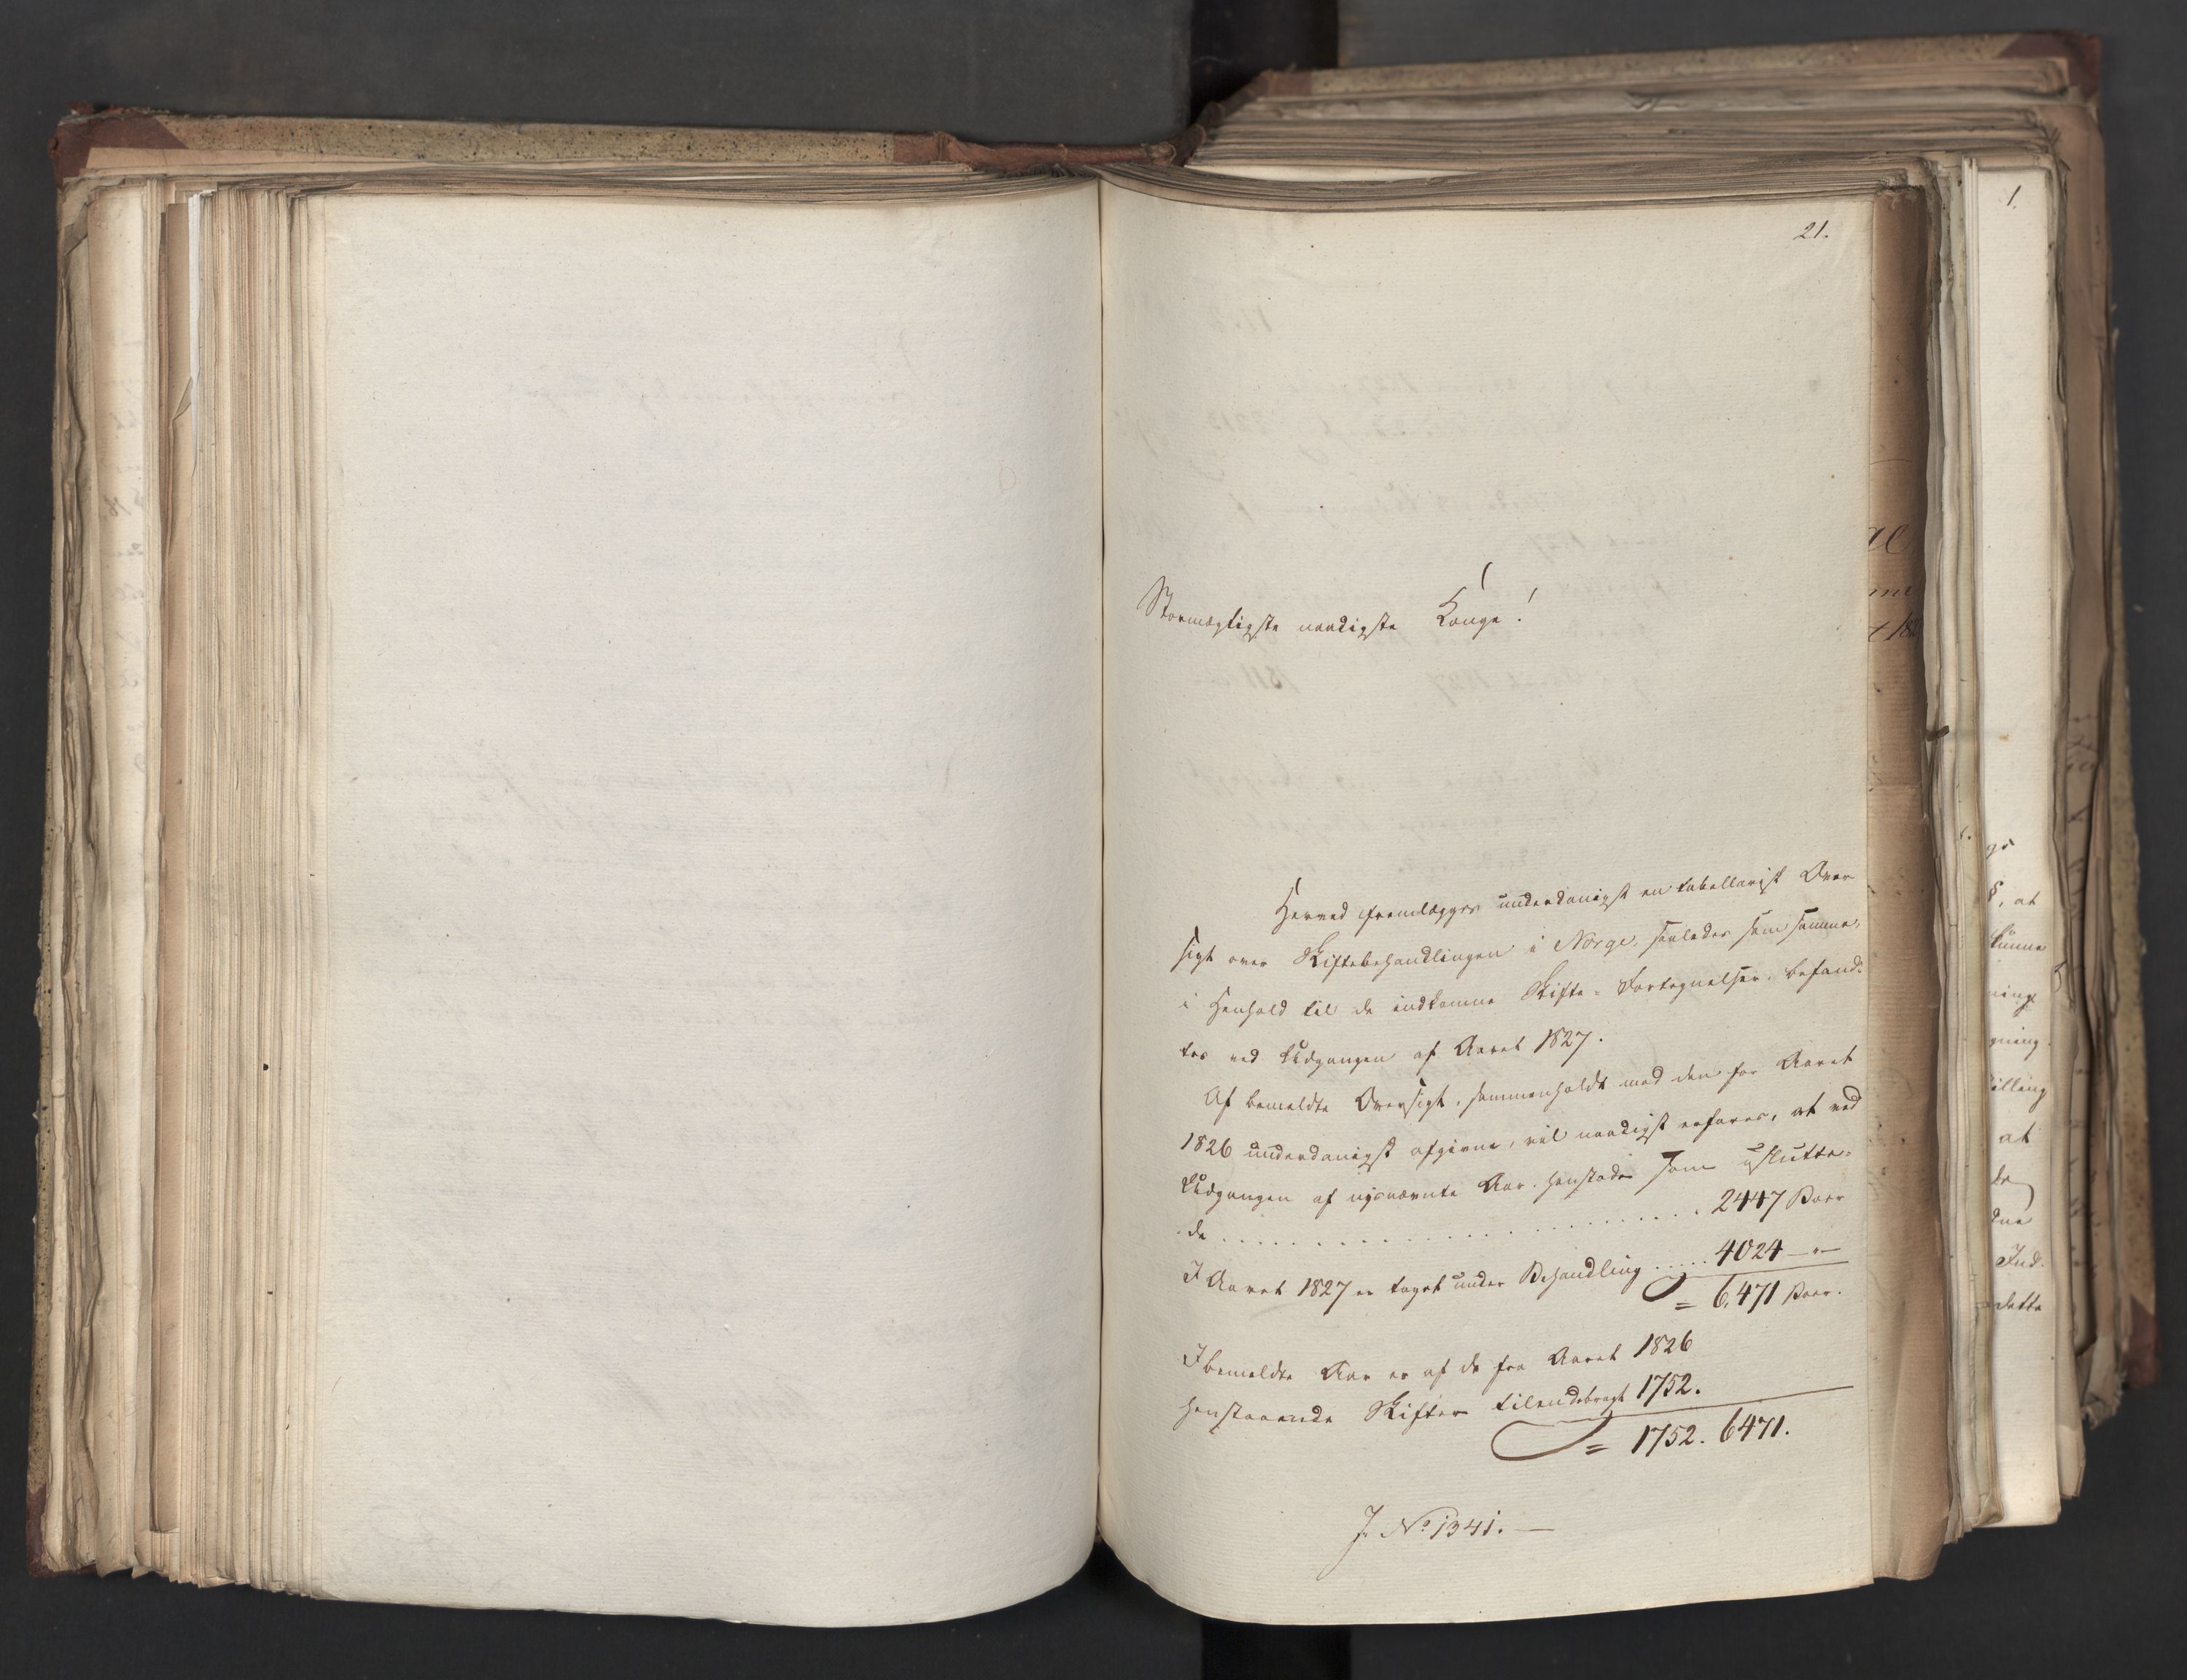 21.
Stormægtigste naadigste Konge!
Herved fremlægges underdanigst en tabellarisk Over
sigt over Skiftebehandlingen i Norge, saaledes som samme,
i Henhold til de indkomne Skifte-Fortegnelser, befand-
tes ved Udgangen af Aaret 1827.
Af bemeldte Oversigt, sammenholdt med den for Aaret
1826 underdanigst afgivne, vil naadigst erfares, at ved
Udgangen af nysnævnte Aar henstode som usluttede-
de . . . . . . . . . . . . . . . . . . 2447 Boer
I Aaret 1827 er taget under Behandling ..... 4024 — " —
= 6,471 Boer.
I bemeldte Aar er af de fra Aaret 1826
henstaaende Skifter tilendebragt 1752.
= 1752. 6471.
J. No 1341. —
1.
at
kunne
ning
gning
illing
at
de
Ind-
dette